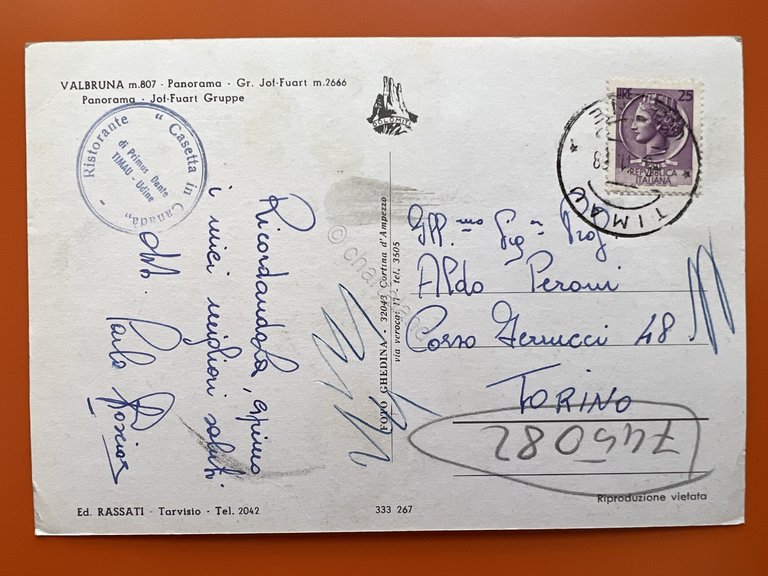 VALBRUNA m.807 - Panorama - Gr. Jof-Fuart m.2666
Panorama - Jof-Fuart Gruppe
Ristorante "Casetta in Canadà"
di Primus Dante
TIMAU - Udine
DOLOMITI
LIRE 25
REPVBBLICA
ITALIANA
TIMAU
Ricordandola, espimo
i miei migliori saluti
dott. Carlo
FOTO GHEDINA - 32043 Cortina d'Ampezzo
via verocai 11 - tel. 3505
© char
Ill.mo Sig. Prof.
Aldo Peroni
Corso Ferrucci 48
TORINO
745082
Riproduzione vietata
Ed. RASSATI - Tarvisio - Tel. 2042
333 267